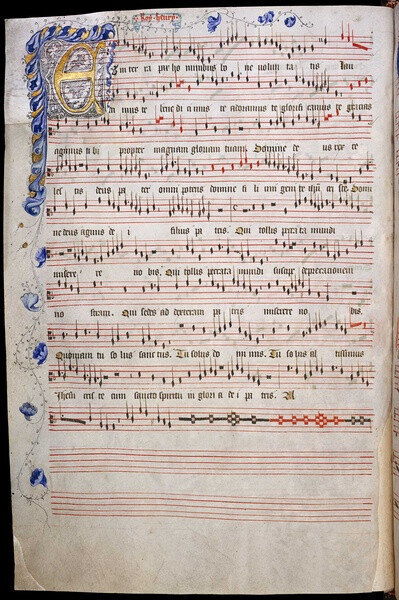 Roy henry
Et in terra pax ho minibus bo ne uolun ta tis Lau
da mus te bene di ci mus te adoramus te glorifi camus te gracias
agimus ti bi propter magnam gloriam tuam. Domine de us rex ce
les tis deus pa ter omni potens domine fi li uni geni te ihu cri ste. Domi
ne deus agnus de i filius pa tris. Qui tollis peccata mundi
misere re no bis. Qui tollis peccata mundi suscipe deprecacionem
no stram. Qui sedes ad dexteram pa tris miserere no bis.
Quoniam tu so lus sanctus. Tu solus do mi nus. Tu so lus al tissimus
Jhesu cris te cum sancto spiritu in glori a de i pa tris. A